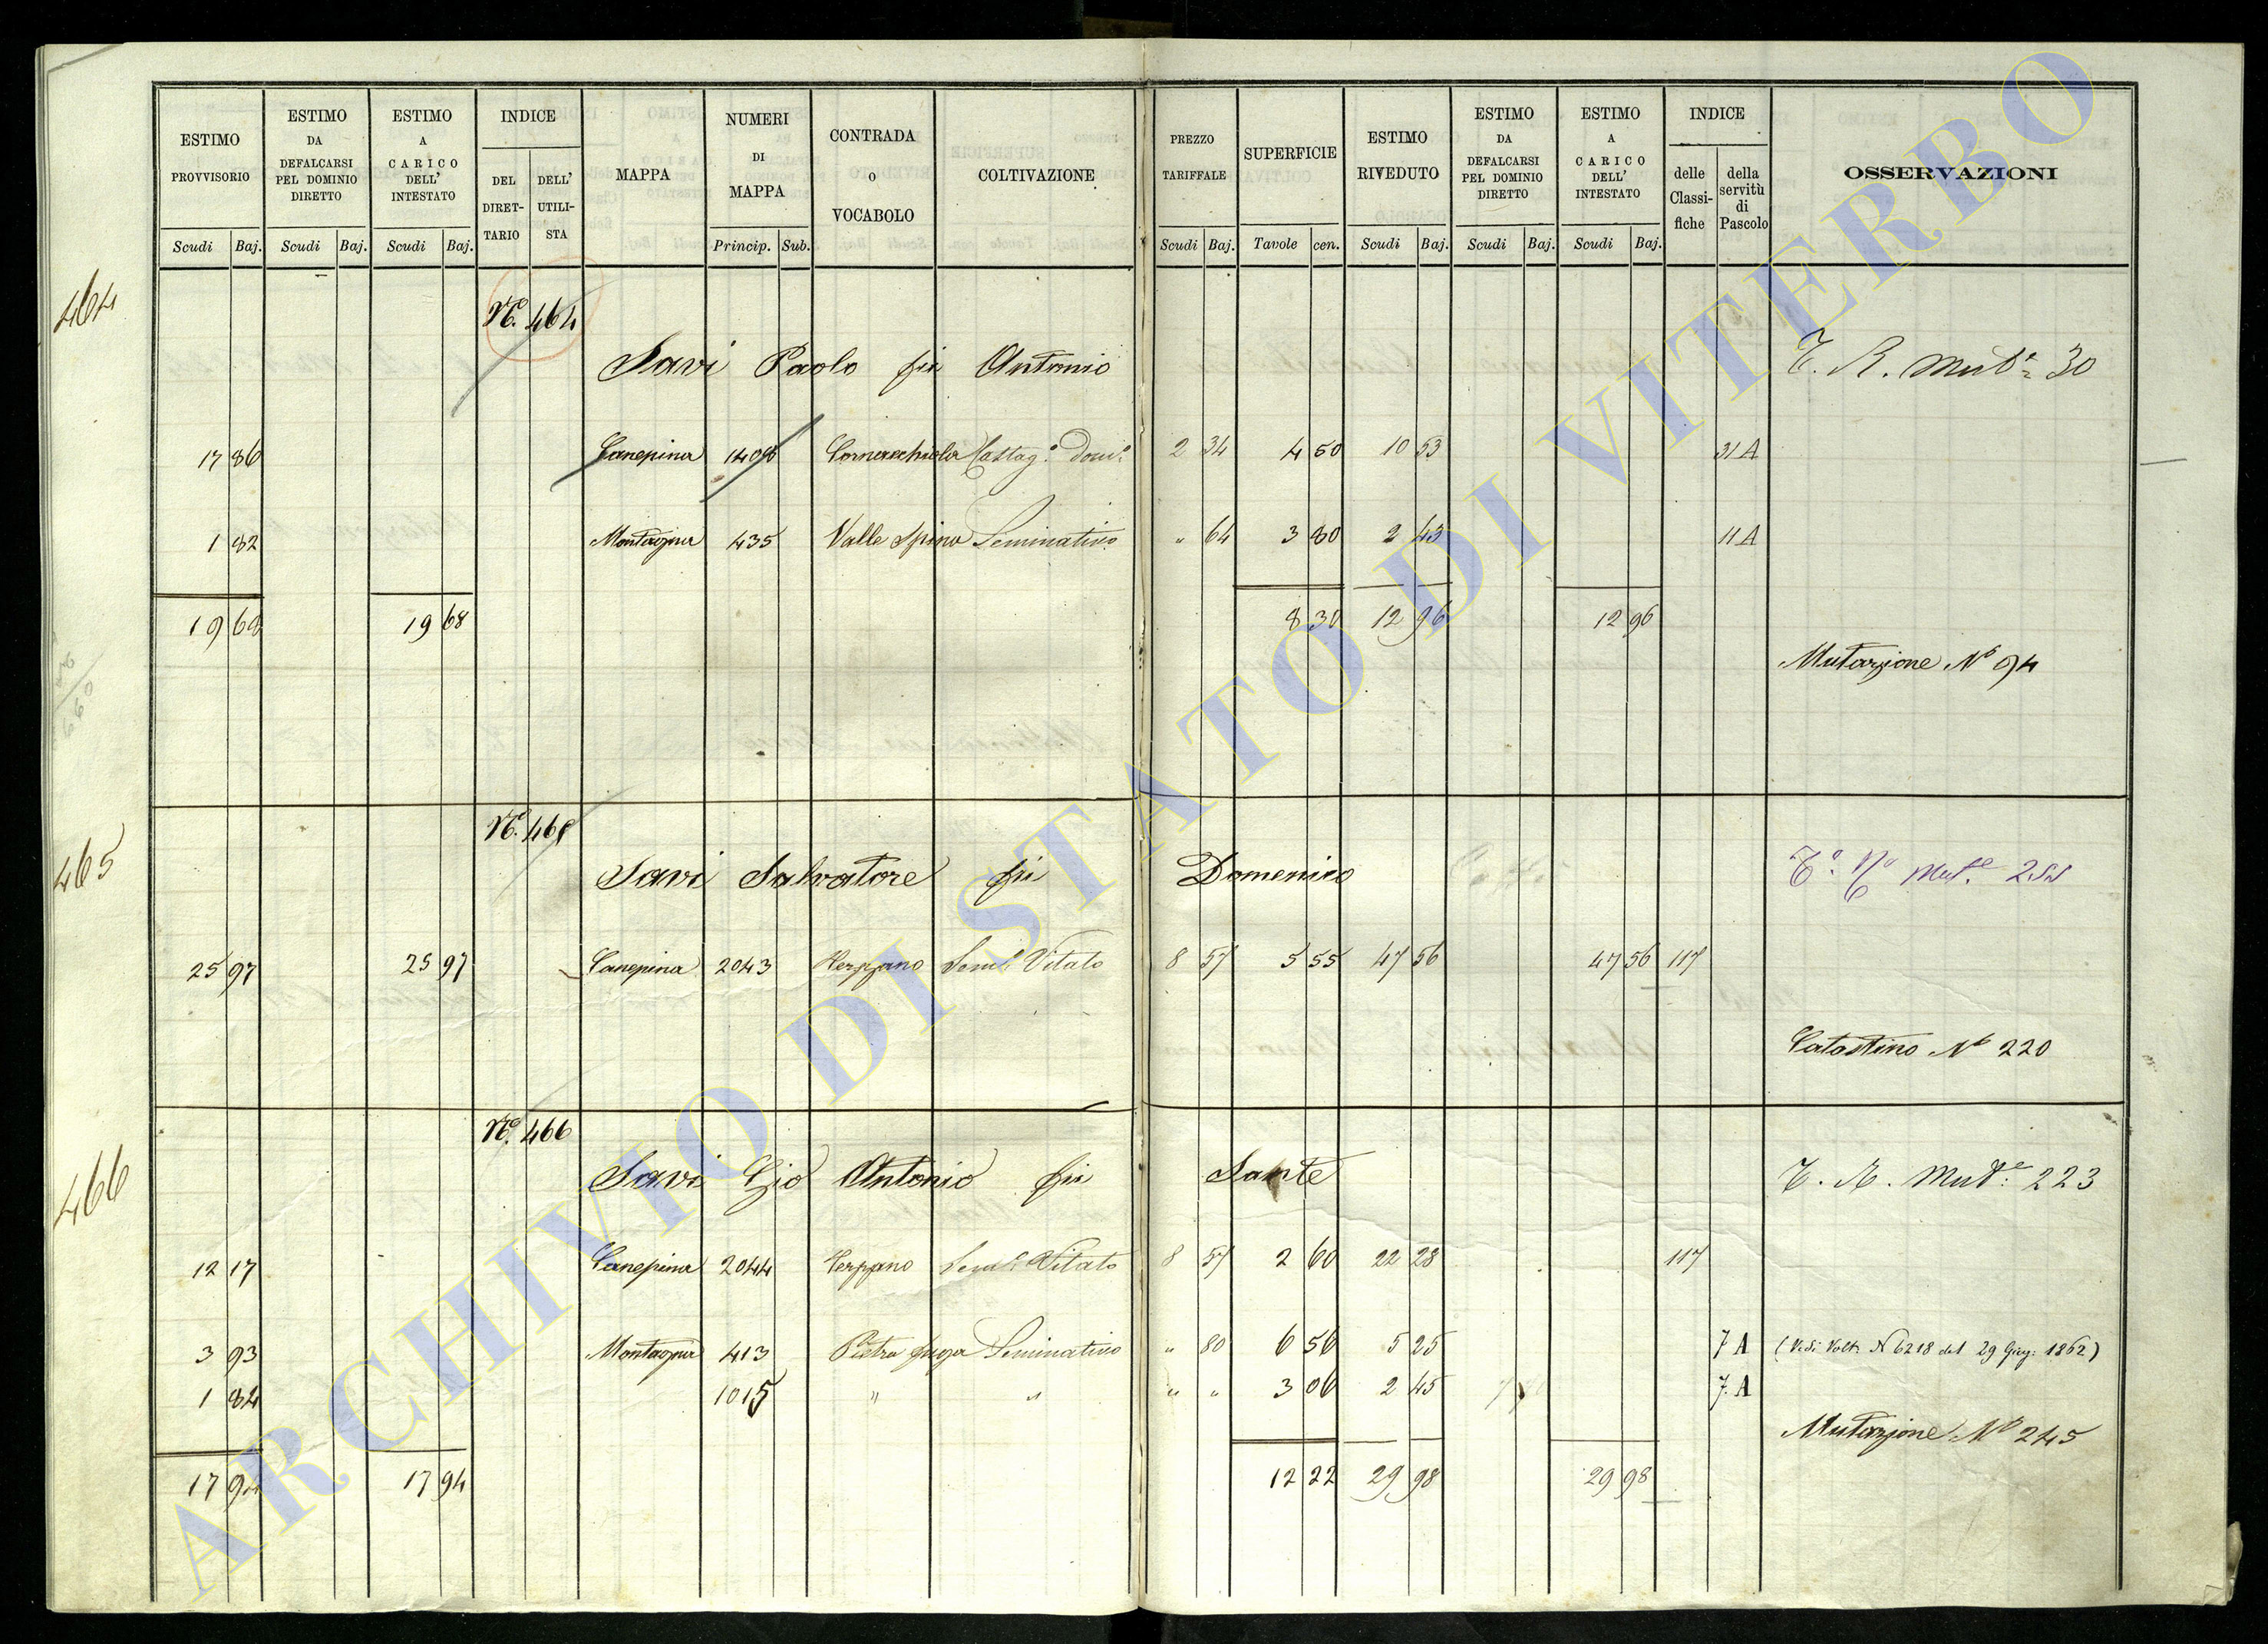 ESTIMO PROVVISORIO | ESTIMO DA DEFALCARSI PEL DOMINIO DIRETTO | ESTIMO A CARICO DELL' INTESTATO | INDICE | MAPPA | NUMERI DI MAPPA | CONTRADA O VOCABOLO | COLTIVAZIONE | PREZZO TARIFFALE | SUPERFICIE | ESTIMO RIVEDUTO | ESTIMO DA DEFALCARSI PEL DOMINIO DIRETTO | ESTIMO A CARICO DELL' INTESTATO | INDICE | OSSERVAZIONI
DEL DIRETTARIO | DELL' UTILISTA | delle Classifiche | della servitù di Pascolo
Scudi | Baj. | Scudi | Baj. | Scudi | Baj. | Princip. | Sub. | Scudi | Baj. | Tavole | cen. | Scudi | Baj. | Scudi | Baj. | Scudi | Baj.
464 | N.º 464
Savi Paolo fu Antonio | T. R. Mut.e 30
17 86 | Canepina | 1408 | Cornacchiola | Castag.o Dom.o | 2 34 | 4 50 | 10 53 | 31 A
1 82 | Montagna | 435 | Valle Spina | Seminativo | " 64 | 3 80 | 2 43 | 11 A
19 68 | 19 68 | 8 30 | 12 96 | 12 96
Mutazione Nº 94
465 | N.º 465
Savi Salvatore fu Domenico | Mut.e
25 97 | 25 97 | Canepina | 2043 | Vitato | 8 57 | 5 55 | 47 56 | 47 56 | 117
Catastino Nº 220
466 | N.º 466
Savi Gio Antonio fu Sante | T. R. Mut.e 223
12 17 | Canepina | 2044 | Vitato | 8 57 | 2 60 | 22 28 | 117
3 93 | Montagna | 413 | Pietra | Seminativo | " 80 | 6 56 | 5 25 | 7 A | (Vedi Volt. N 6218 del 29 Giug: 1862)
1 84 | 1015 | " | " | " " | 3 06 | 2 45 | 7. A
Mutazione Nº 245
17 94 | 17 94 | 12 22 | 29 98 | 29 98
ARCHIVIO DI STATO DI VITERBO